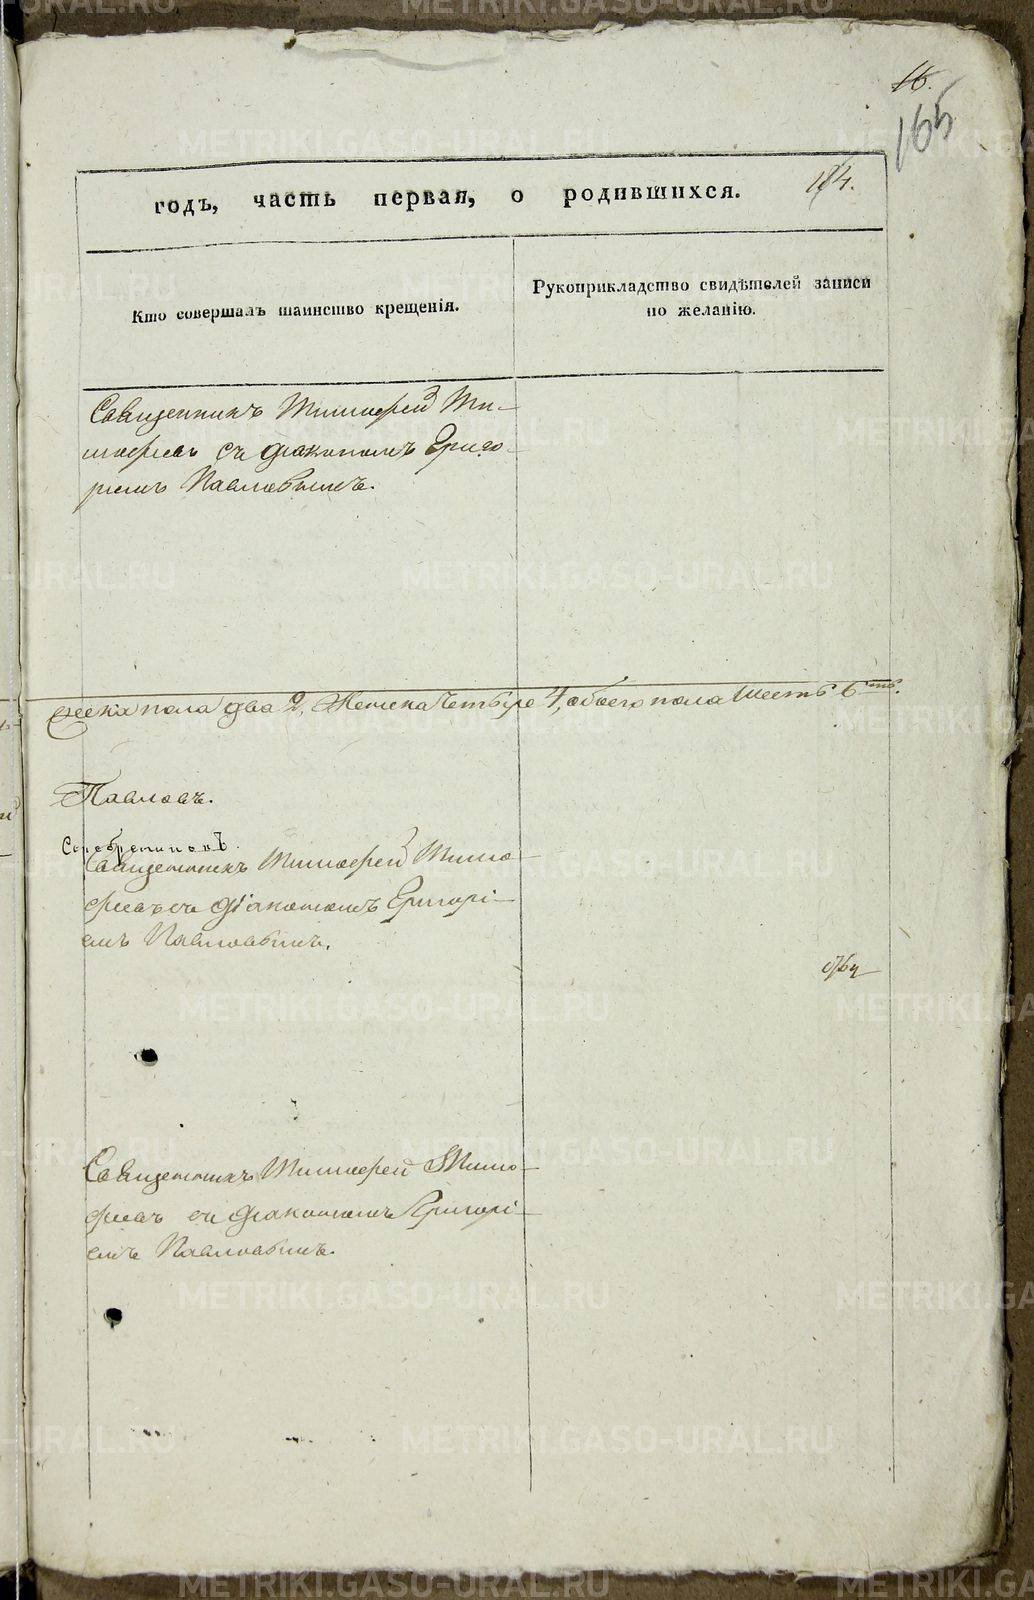 16.
165
184.
годъ, часть первая, о родившихся.
Кто совершалъ таинство крещенія.
Рукоприкладство свидѣтелей записи
по желанію.
Священникъ Тимофей Ти-
мофеевъ съ діакономъ Григо-
ріемъ Павловымъ.
жеска пола два 2, Женска четыре 4, обоего пола шесть 6ть.
Павловъ.
Серебрениковъ.
Священникъ Тимофей Тимо-
феевъ съ діакономъ Григорі-
емъ Павловымъ.
Священникъ Тимофей Тимо-
феевъ съ діакономъ Григорі-
емъ Павловымъ.
METRIKI.GASO-URAL.RU